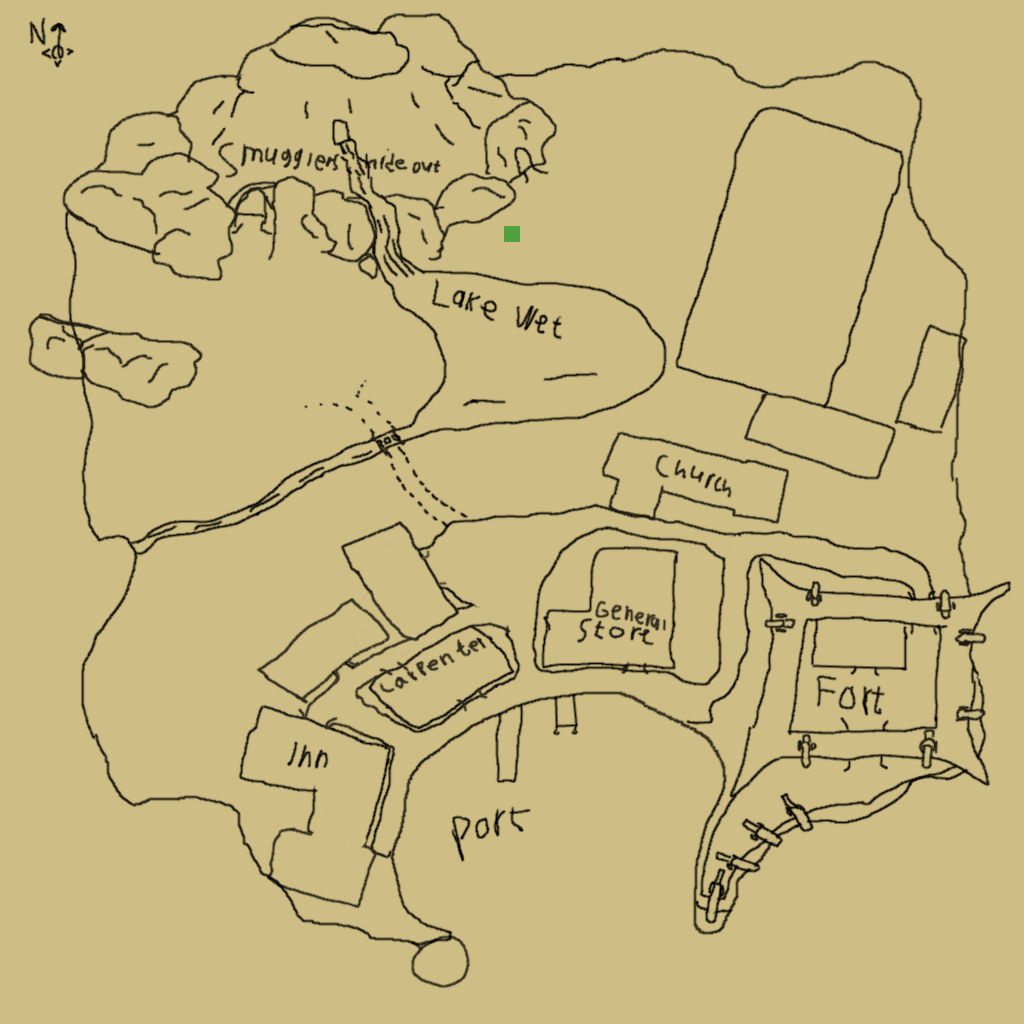 N
Smugglers hide out
Lake Wet
Church
General
Store
Carpenter
Fort
Inn
port